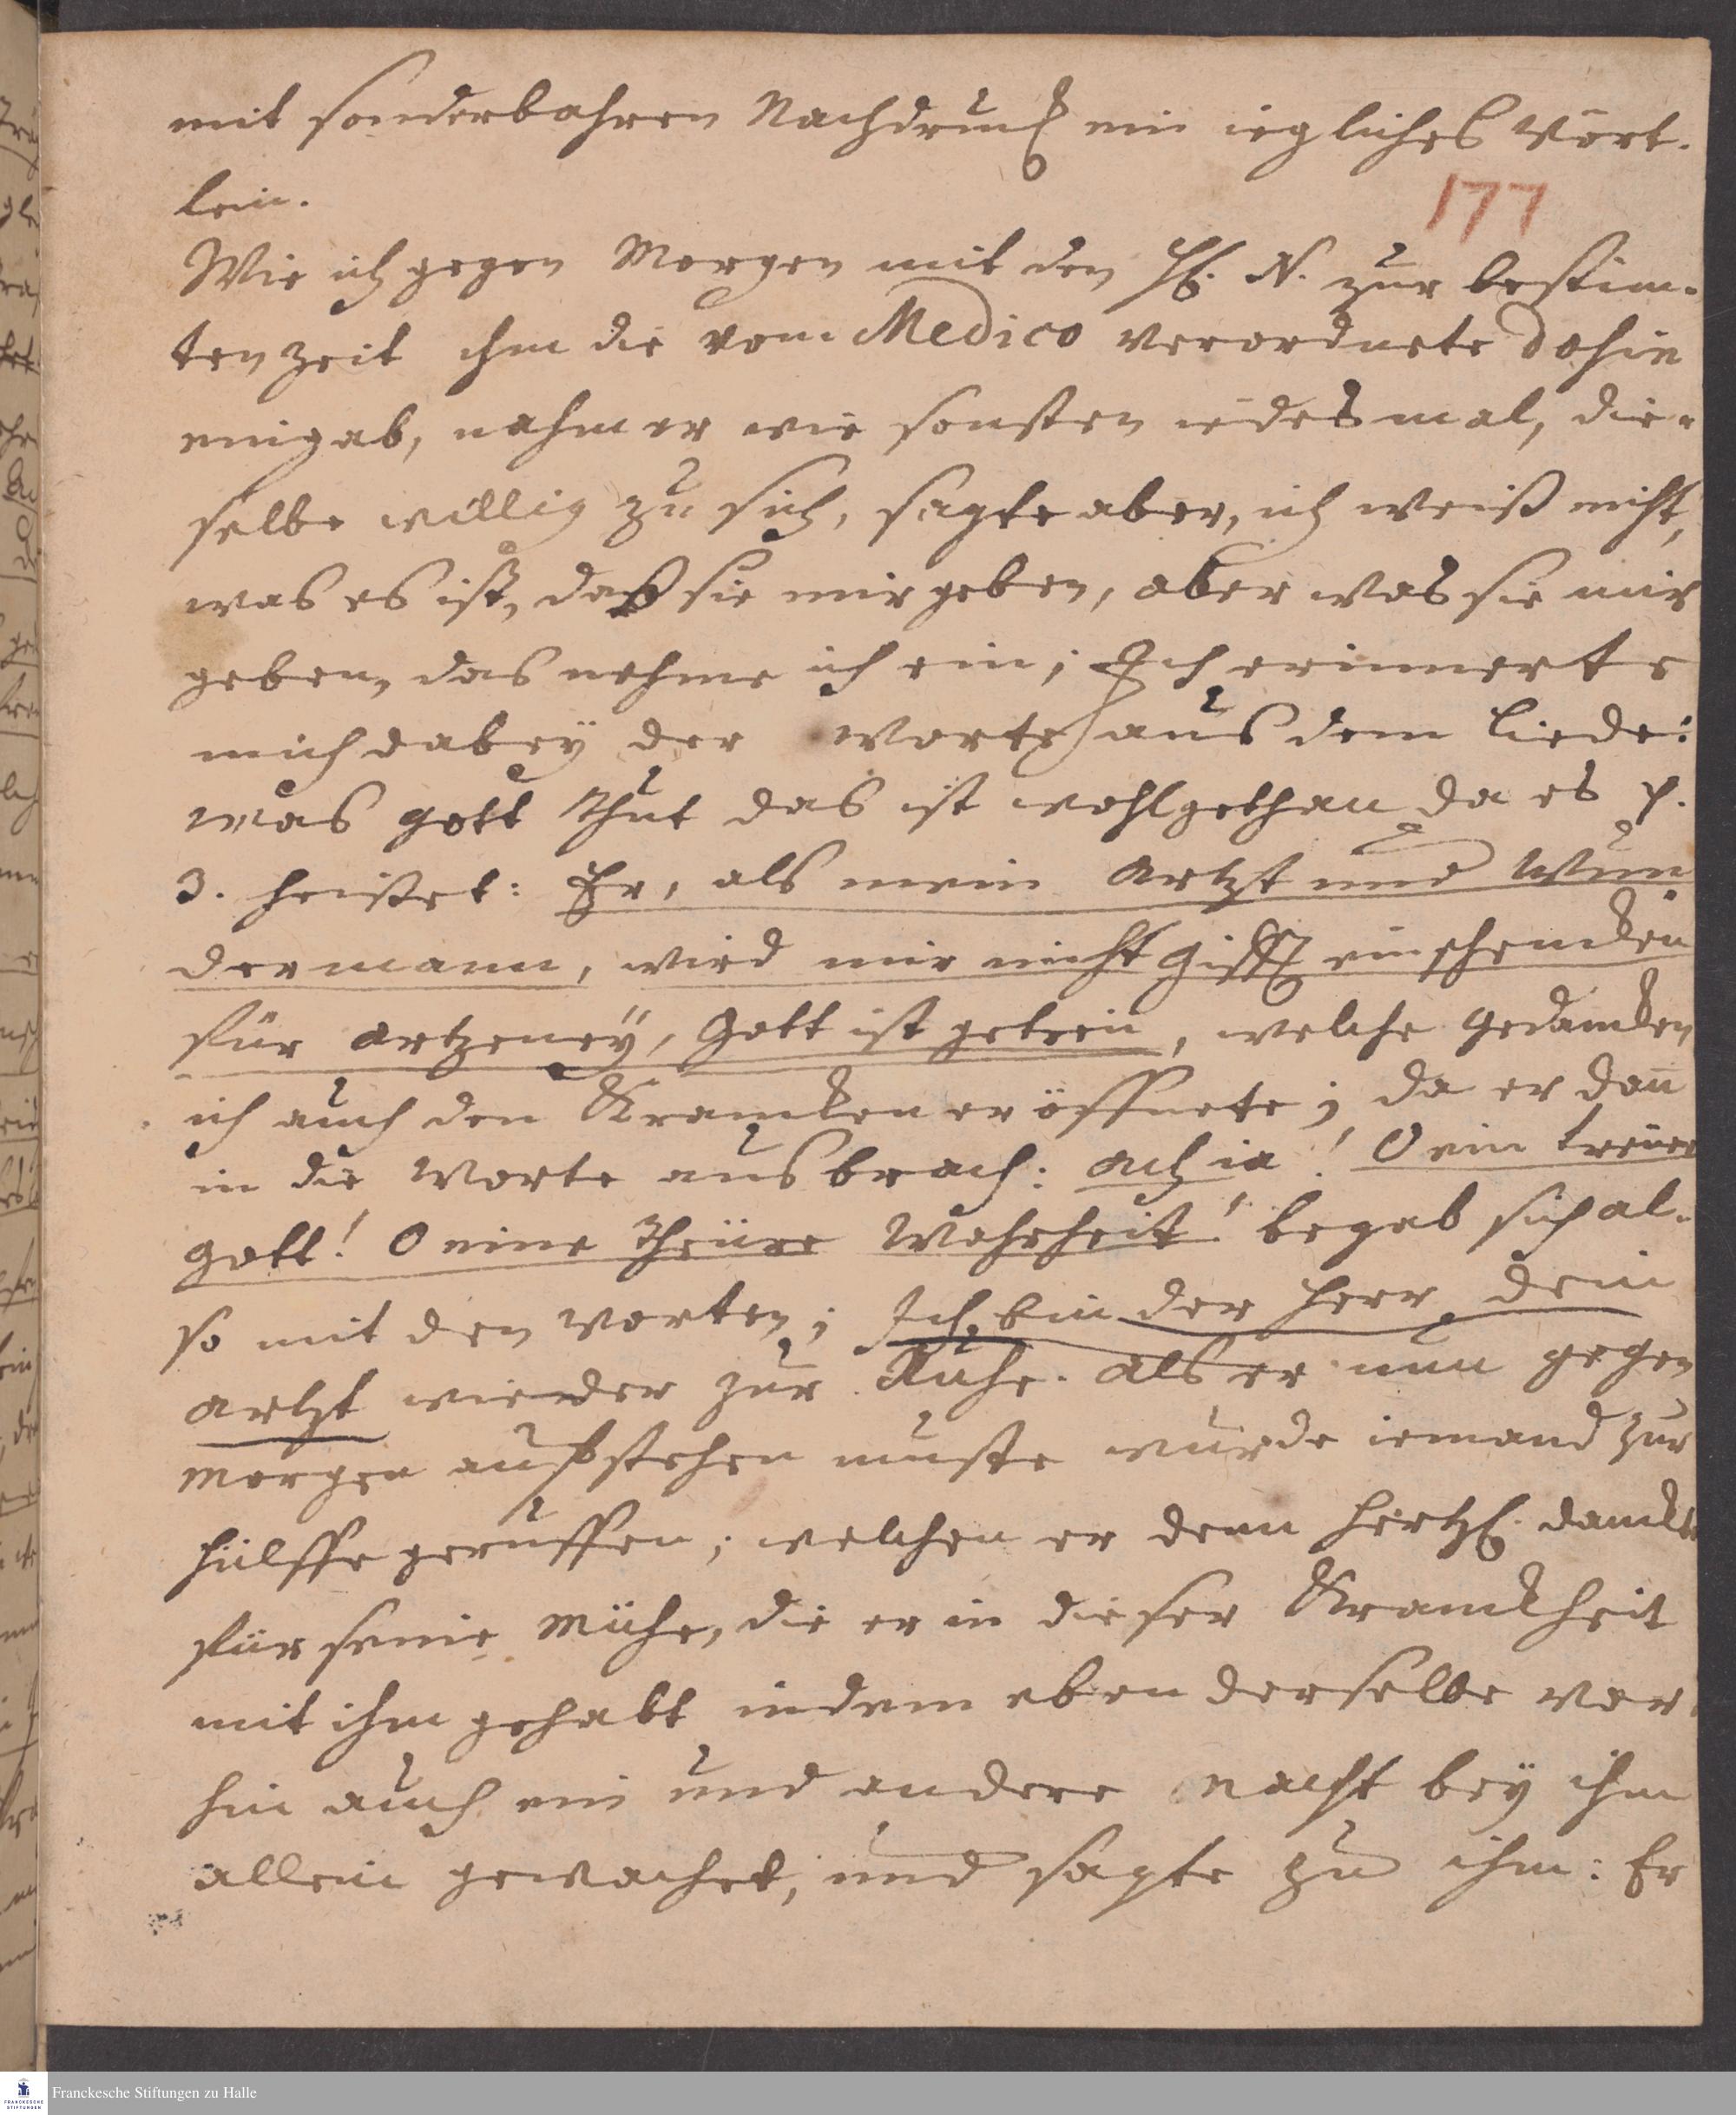 mit sonderbahren Nachdruck ein iegliches Wört-
lein.
177
Wie ich gegen Morgen mit den H. N. zur bestim-
ten zeit ihm die vom Medico verordnete dosin
eingab, nahm er wie sonsten iedes mal, die-
selbe willig zu sich, sagte aber, ich weiß nicht,
was es ist, daß sie mir geben, aber was sie mir
geben, das nehme ich ein; Ich erinnerte
mich dabey der Worte aus dem Liede:
was Gott thut das ist wohlgethan da es p.
3. heisset: Er, als mein Artzt und Wun
dermann, wird mir nicht Gifft einschencken
für artzeney, Gott ist getreu, welche Gedancken
ich auch den Krancken eröffnete; da er dañ
in die Worte ausbrach: ach ia! O ein treuer
Gott! O eine Theüre Wahrheit! begab sich al-
so mit den Worten; Ich bin der Herr dein
artzt wieder zur Ruhe. Als er nun gegen
Morgen aufstehen muste wurde iemand zur
hülffe geruffen; welchen er denn hertzl. danckte
für seine Mühe, die er in dieser Kranckheit
mit ihm gehabt indem eben derselbe vor-
hin auch ein und andere Nacht bey ihm
allein gewachet, und sagte zu ihm: Er
FRANCKESCHE
STIFTUNGEN
Franckesche Stiftungen zu Halle